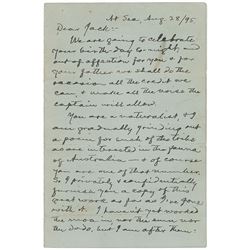 At Sea, Aug. 28/95.
Dear Jack:—
We are going to celebrate
your birth-day to-night, and
out of affection for you & for
your father we shall do the
occasion all the credit we
can & make all the noise the
captain will allow.
You are a naturalist, & I
am gradually grinding out
a poem for such of the folks
as are interested in the fauna
of Australia — & of course
you are one of that number.
So I privately & confidentially
promise you a copy of this
great work as far as I've gone
with it. I haven't yet worked
the moa in, nor the
the dodo, but I am after them.